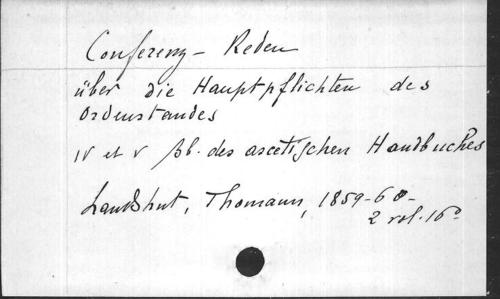 Conferenz - Reden
über die Hauptpflichten des
Ordenstandes
IV et V Bb. des ascetischen Handbuches
Landshut, Thomann, 1859-60-
2 vol. 16°